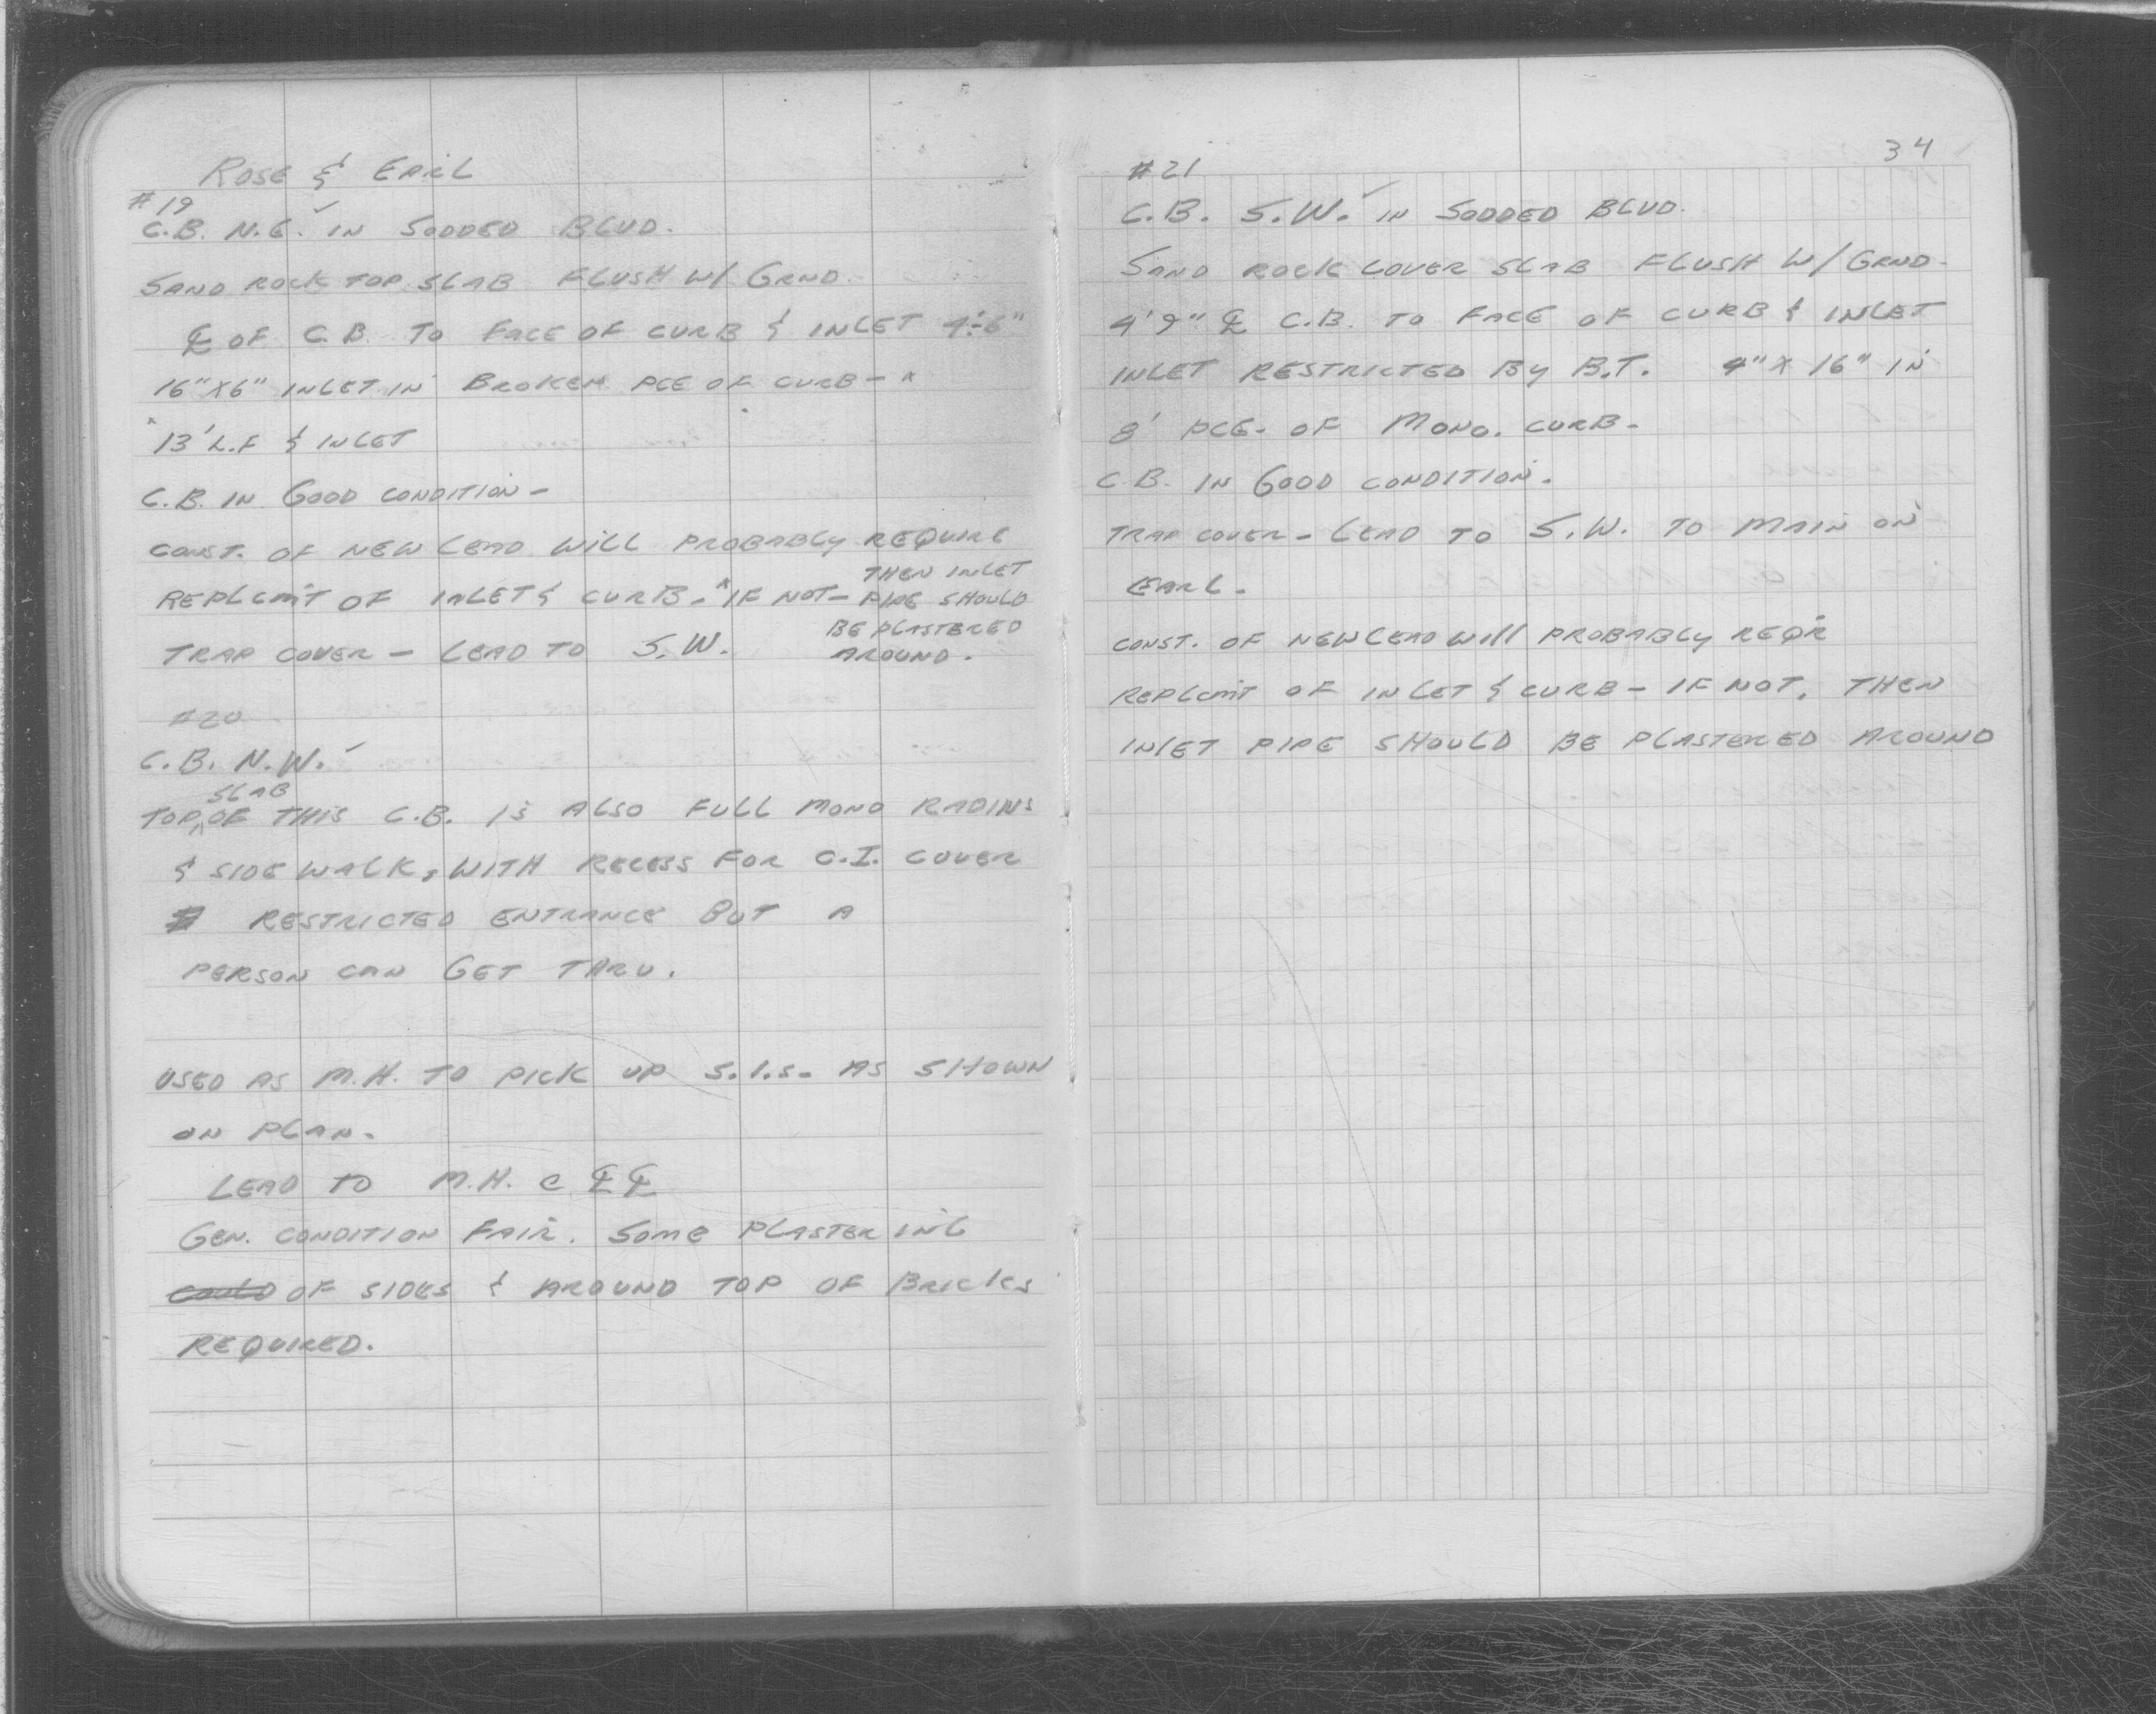 ROSE & EARL
#19
C.B. N.E. ✓ IN SODDED BLVD.
SAND ROCK TOP SLAB FLUSH W/ GRND.
℄ OF C.B. TO FACE OF CURB & INLET 4'-6"
16"X6" INLET IN BROKEN PCE OF CURB - x
x 13' L.F & INLET
C.B. IN GOOD CONDITION -
CONST. OF NEW LEAD WILL PROBABLY REQUIRE
REPLCMT OF INLET & CURB - x IF NOT - THEN INLET PIPE SHOULD
BE PLASTERED AROUND.
TRAP COVER - LEAD TO S.W.
#20
C.B. N.W. ✓
TOP SLAB OF THIS C.B. IS ALSO FULL MONO RADIUS
& SIDE WALK, WITH RECESS FOR C.I. COVER
RESTRICTED ENTRANCE BUT A
PERSON CAN GET THRU.
USED AS M.H. TO PICK UP S.I.S- AS SHOWN
ON PLAN.
LEAD TO M.H. @ ℄ ℄
GEN. CONDITION FAIR. SOME PLASTERING
COULD OF SIDES & AROUND TOP OF BRICKS
REQUIRED.
34
#21
C.B. S.W. ✓ IN SODDED BLVD.
SAND ROCK COVER SLAB FLUSH W/ GRND-
4'9" ℄ C.B. TO FACE OF CURB & INLET
INLET RESTRICTED BY B.T. 4" X 16" IN
8' PCE. OF MONO. CURB-
C.B. IN GOOD CONDITION.
TRAP COVER - LEAD TO S.W. TO MAIN ON
EARL.
CONST. OF NEW LEAD WILL PROBABLY REQ'R
REPLCMT OF INLET & CURB - IF NOT, THEN
INLET PIPE SHOULD BE PLASTERED AROUND